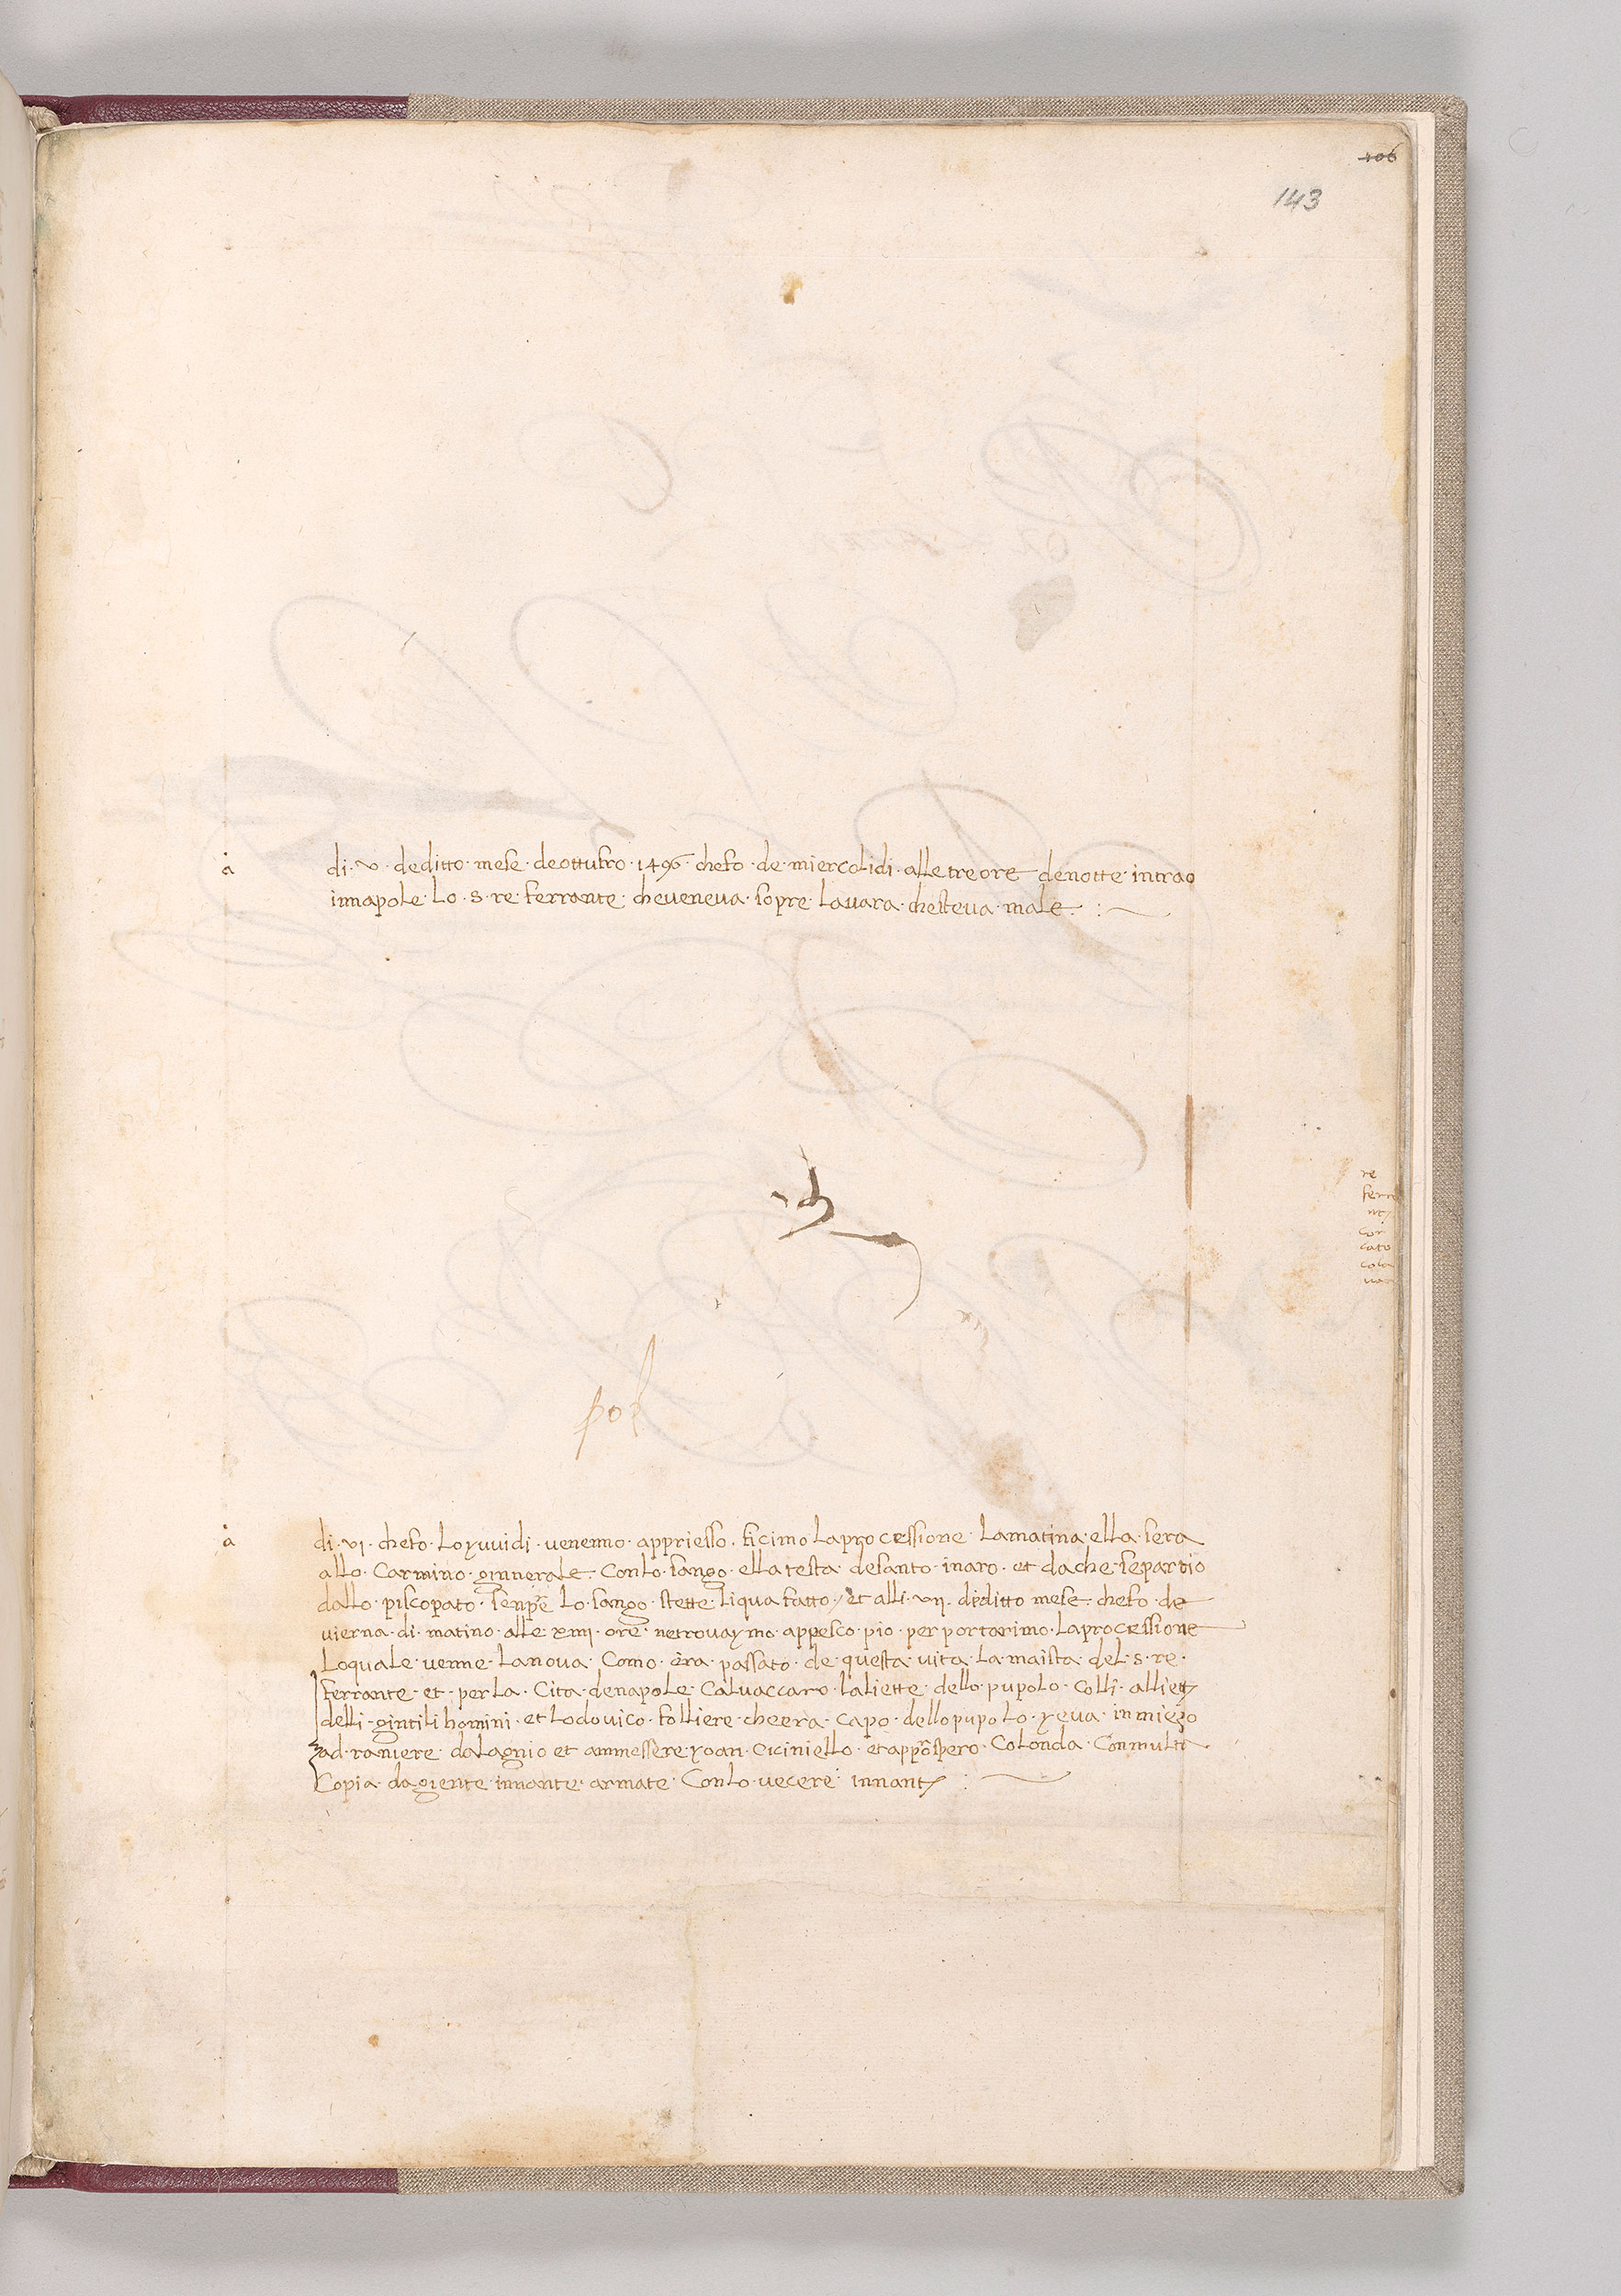 106
143
a di · v · deditto · mese · deottufro · 1496 · chefo · de · miercolidi · alle treore denotte · intrao
innapole · lo · s · re · ferrante · cheveneva · sopre · lavara · chesteva · male · : ~
re
ferra
nt
cor
cato
cola
vara
pol
a di · vi · chefo · loyuvidi · venenno · appriesso · ficimo laprocessione · lamatina · ella · sera
allo · Carmino · ginnerale · Conlo · sango · ella testa · desanto · inaro · et dache · separtio
dallo · piscopato · senpre · lo · sango · stette · liqua fatto · et alli · vii · dˑ ditto mese · chefo · de
vierna · di · matino · alle · xiiii · ore · netrovaymo · appesco · pio · per portarimo · laprocessione
loquale · venne · lanova · Como · era · passato · de · questa · vita · la · maista · del · s · re ·
ferrante · et · perla · Cita · denapole · Calvaccaro · laliette · dello · pupolo · colli · alliett
delli · gintili homini · et lodovico · folliere · cheera · capo · dellopupolo · yeva · in miezo
ad · raniere · dalagnio et ammessere · yoan · ciciniello · et approspero · Colonda · Conmulta
Copia · dagiente · innante · armate · Conlo · vecere · innant : ~